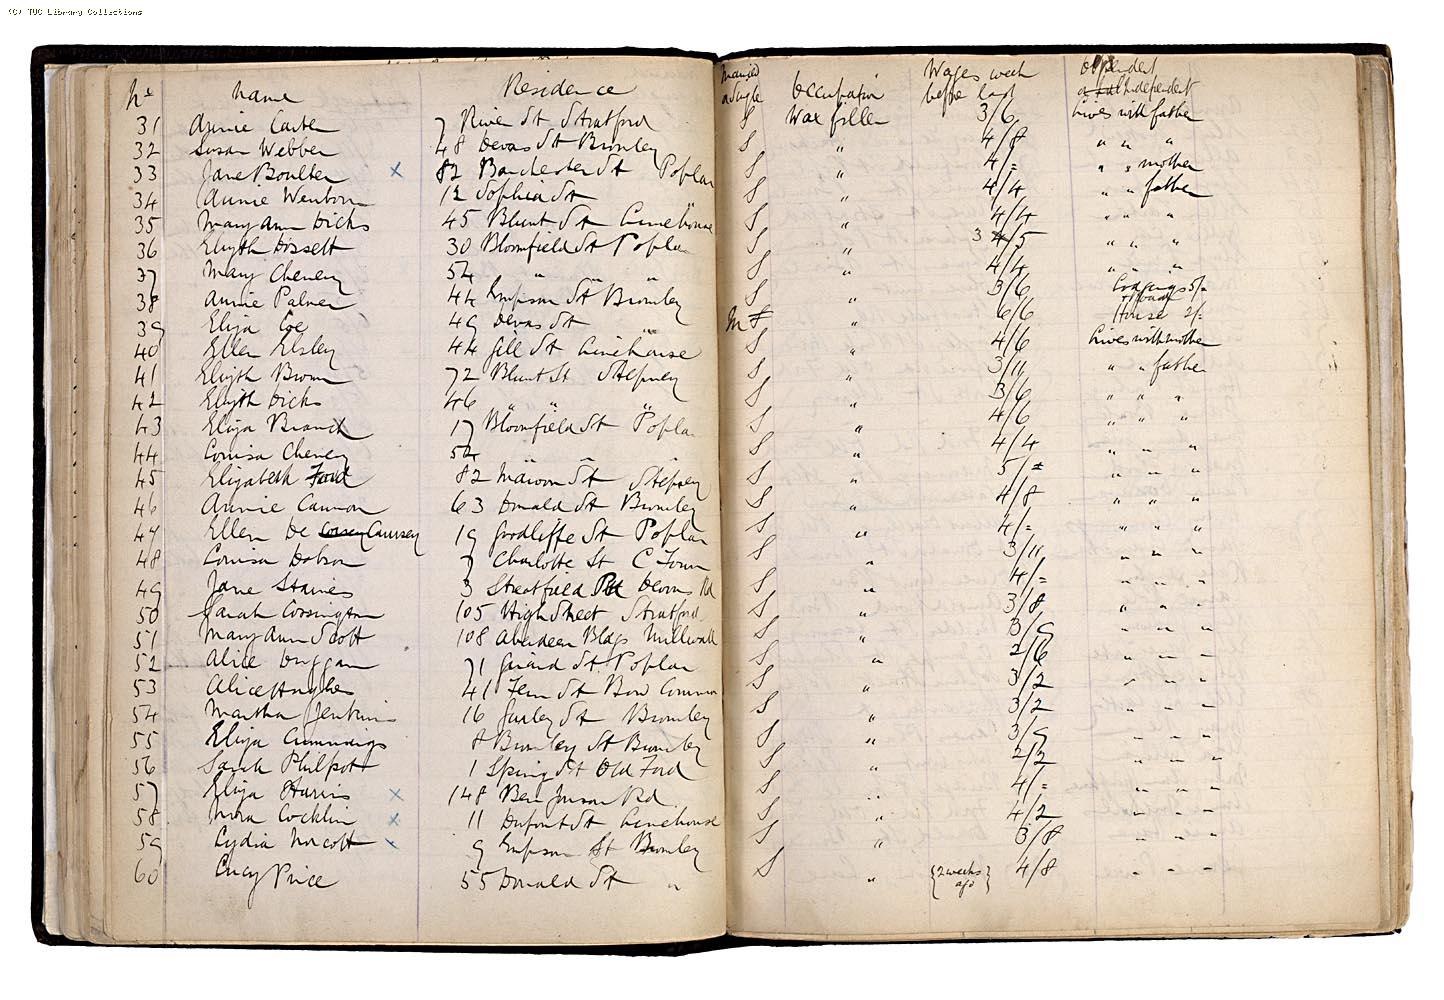 (C) TUC Library Collections
No Name Residence Married or Single Occupation Wages week before last Dependent or Independent
31 Annie Carter 7 River St Stratford S Wax filler 3/6 Lives with father
32 Susan Webber 48 Devas St Bromley S " 4/8 " " "
33 Jane Boulter x 82 Barchester St Poplar S " 4/= " " mother
34 Annie Wenborn 12 Sophia St " S " 4/4 " " father
35 Mary Ann Dicks 45 Blunt St Limehouse S " 4/4 " " "
36 Elizth Dissett 30 Bloomfield St Poplar S " 3/5 " " "
37 Mary Cheney 54 " " " S " 4/4 " " "
38 Annie Palmer 44 Empson St Bromley S " 3/6 Lodgings 5/=
39 Eliza Coe 49 Devas St " M " 6/6 House 2/=
40 Ellen Elsley 44 Gill St Limehouse S " 4/6 Lives with mother
41 Elizth Brown 72 Blunt St Stepney S " 3/11 " " father
42 Elizth Dicks 46 " " " S " 3/6 " " "
43 Eliza Branch 17 Bloomfield St Poplar S " 4/6 " " "
44 Louisa Cheney 54 " " S " 4/4 " " "
45 Elizabeth Ford 82 Maroon St Stepney S " 5/= " " "
46 Annie Cannon 63 Donald St Bromley S " 4/8 " " "
47 Ellen De Caursey 19 Grodliffe St Poplar S " 4/= " " "
48 Louisa Dobson 7 Charlotte St C Town S " 3/11 " " "
49 Jane Staines 3 Streatfield Devons Rd S " 4/= " " "
50 Sarah Cossington 105 High Street Stratford S " 3/8 " " "
51 Mary Ann Scott 108 Aberdeen Bldgs Millwall S 3/9 " " "
52 Alice Duggan 71 Grind St Poplar S " 2/6 " " "
53 Alice Hughes 41 Fern St Bow Common S " 3/2 " " "
54 Martha Jenkins 16 Gurley St Bromley S " 3/2
55 Eliza Cummings 8 Bromley St Bromley S " 3/9 " " "
56 Sarah Philpott 1 Spring St Old Ford S " 2/2 " " "
57 Eliza Harris x 148 Ben Jonson Rd S " 4/= " " "
58 Nora Cocklin x 11 Dupont St Limehouse S " 4/2 " " "
59 Lydia Norcott x 9 Empson St Bromley S " 3/8 " " "
60 Lucy Price 55 Donald St " S " {2 weeks ago} 4/8 " " "